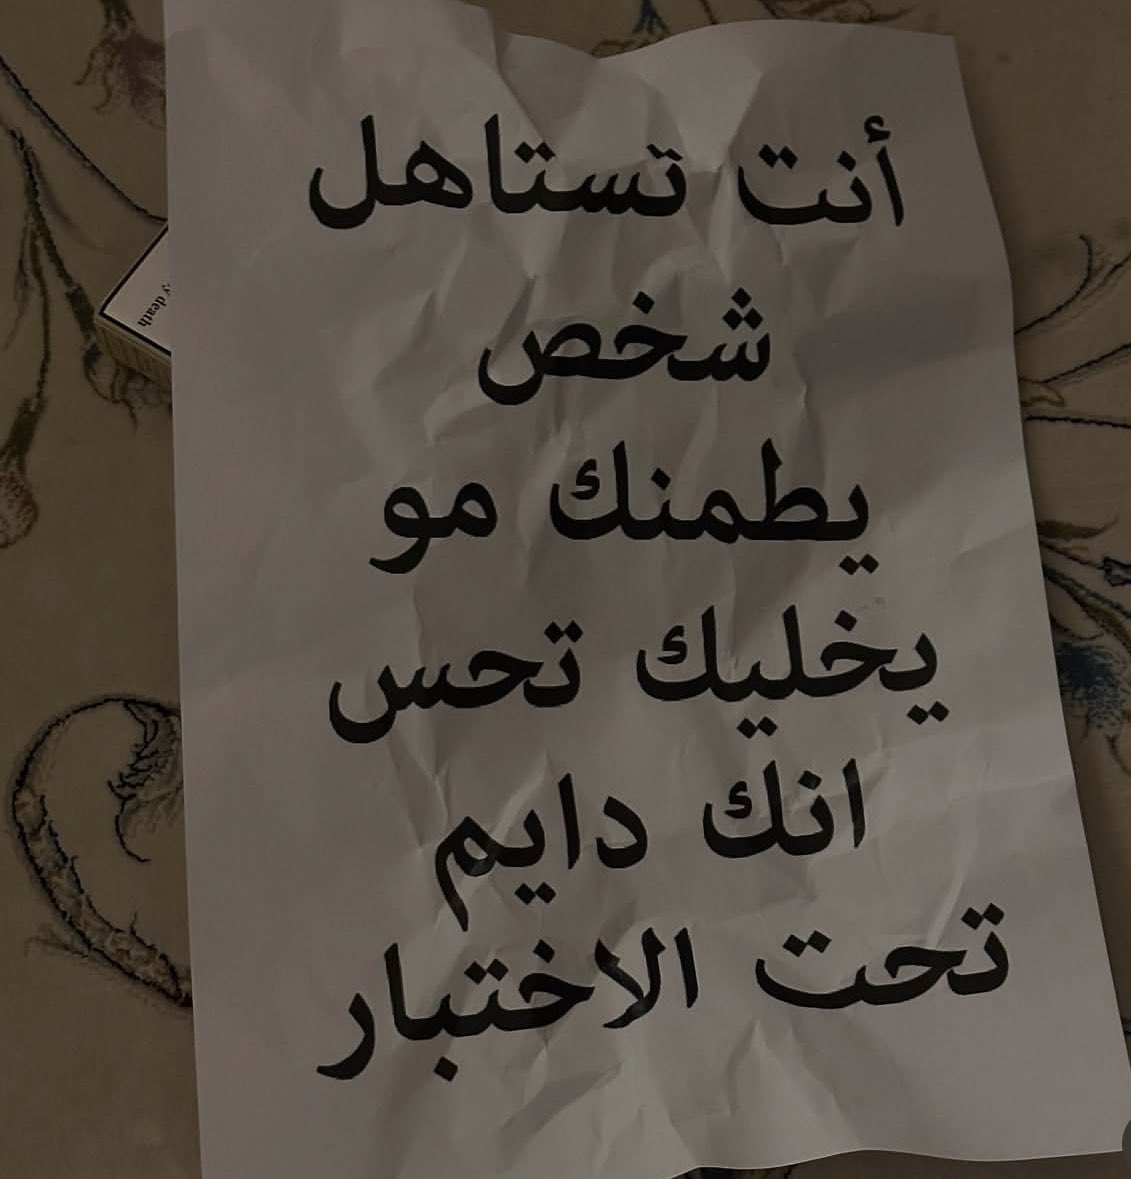 أنت تستاهل
شخص
يطمنك مو
يخليك تحس
انك دايم
تحت الاختبار
death